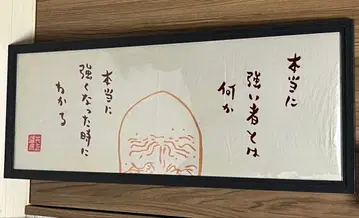 本当に
強い者とは
何か
本当に
強くなった時に
わかる